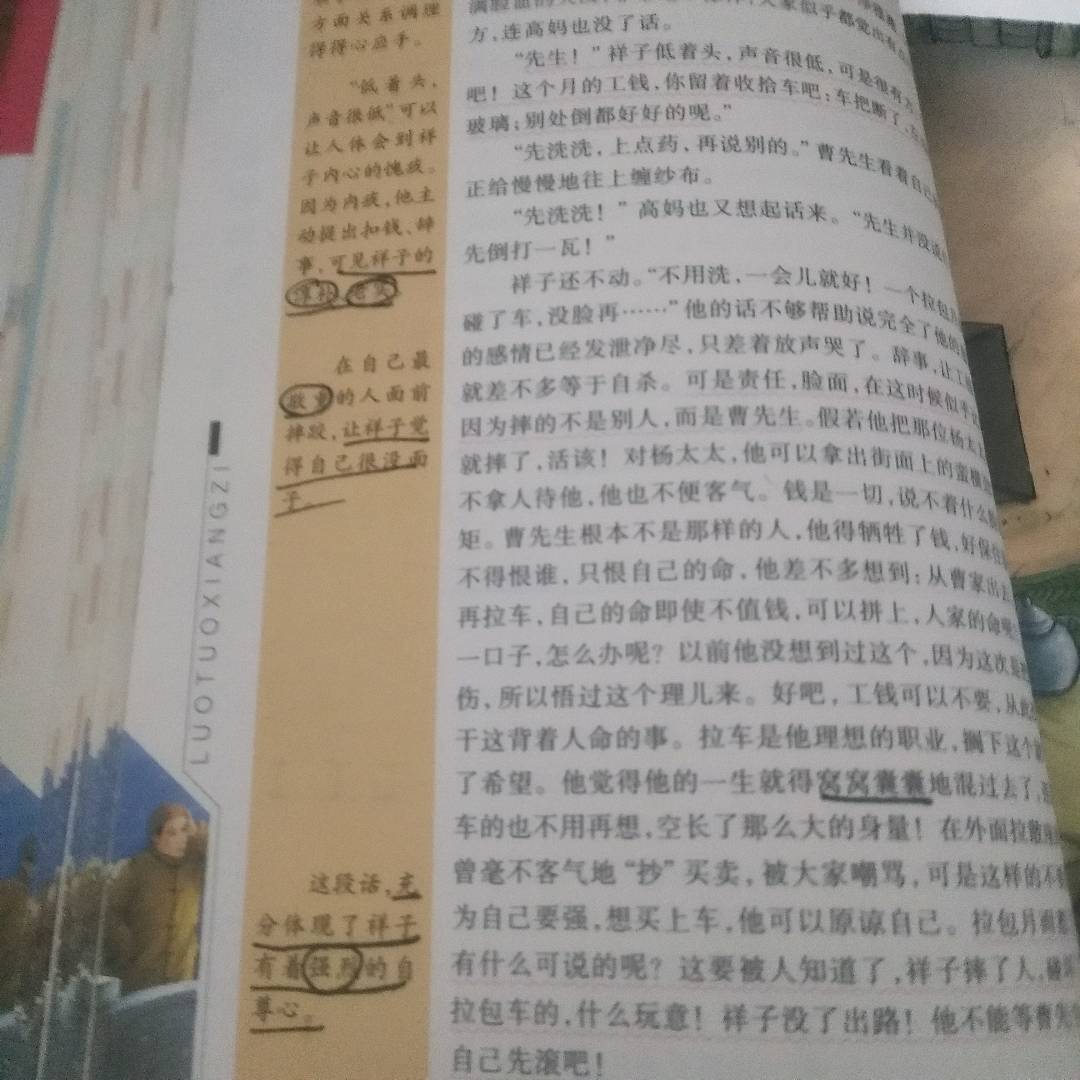 方面关系调理
得得心应手。
“低着头，
声音很低”可以
让人体会到祥
子内心的愧疚。
因为内疚，他主
动提出扣钱、辞
事，可见祥子的
在自己最
敬重的人面前
摔跤，让祥子觉
得自己很没面
子。
这段话，充
分体现了祥子
有着强烈的自
尊心。
LUOTUOXIANGZI
方，连高妈也没了话。
“先生！”祥子低着头，声音很低，可是很有
吧！这个月的工钱，你留着收拾车吧：车把断了，
玻璃；别处倒都好好的呢。”
“先洗洗，上点药，再说别的。”曹先生看着自己
正给慢慢地往上缠纱布。
“先洗洗！”高妈也又想起话来。“先生并没
先倒打一瓦！”
祥子还不动。“不用洗，一会儿就好！一个拉包
碰了车，没脸再……”他的话不够帮助说完全了他的
的感情已经发泄净尽，只差着放声哭了。辞事，让工
就差不多等于自杀。可是责任，脸面，在这时候似乎
因为摔的不是别人，而是曹先生。假若他把那位杨太
就摔了，活该！对杨太太，他可以拿出街面上的蛮横
不拿人待他，他也不便客气。钱是一切，说不着什么
矩。曹先生根本不是那样的人，他得牺牲了钱，好保
不得恨谁，只恨自己的命，他差不多想到：从曹家出去
再拉车，自己的命即使不值钱，可以拼上，人家的命
一口子，怎么办呢？以前他没想到过这个，因为这次
伤，所以悟过这个理儿来。好吧，工钱可以不要，从
干这背着人命的事。拉车是他理想的职业，搁下这个
了希望。他觉得他的一生就得窝窝囊囊地混过去了，
车的也不用再想，空长了那么大的身量！在外面拉散
曾毫不客气地“抄”买卖，被大家嘲骂，可是这样的不
为自己要强，想买上车，他可以原谅自己。拉包月
有什么可说的呢？这要被人知道了，祥子摔了人，
拉包车的，什么玩意！祥子没了出路！他不能等曹先
自己先滚吧！